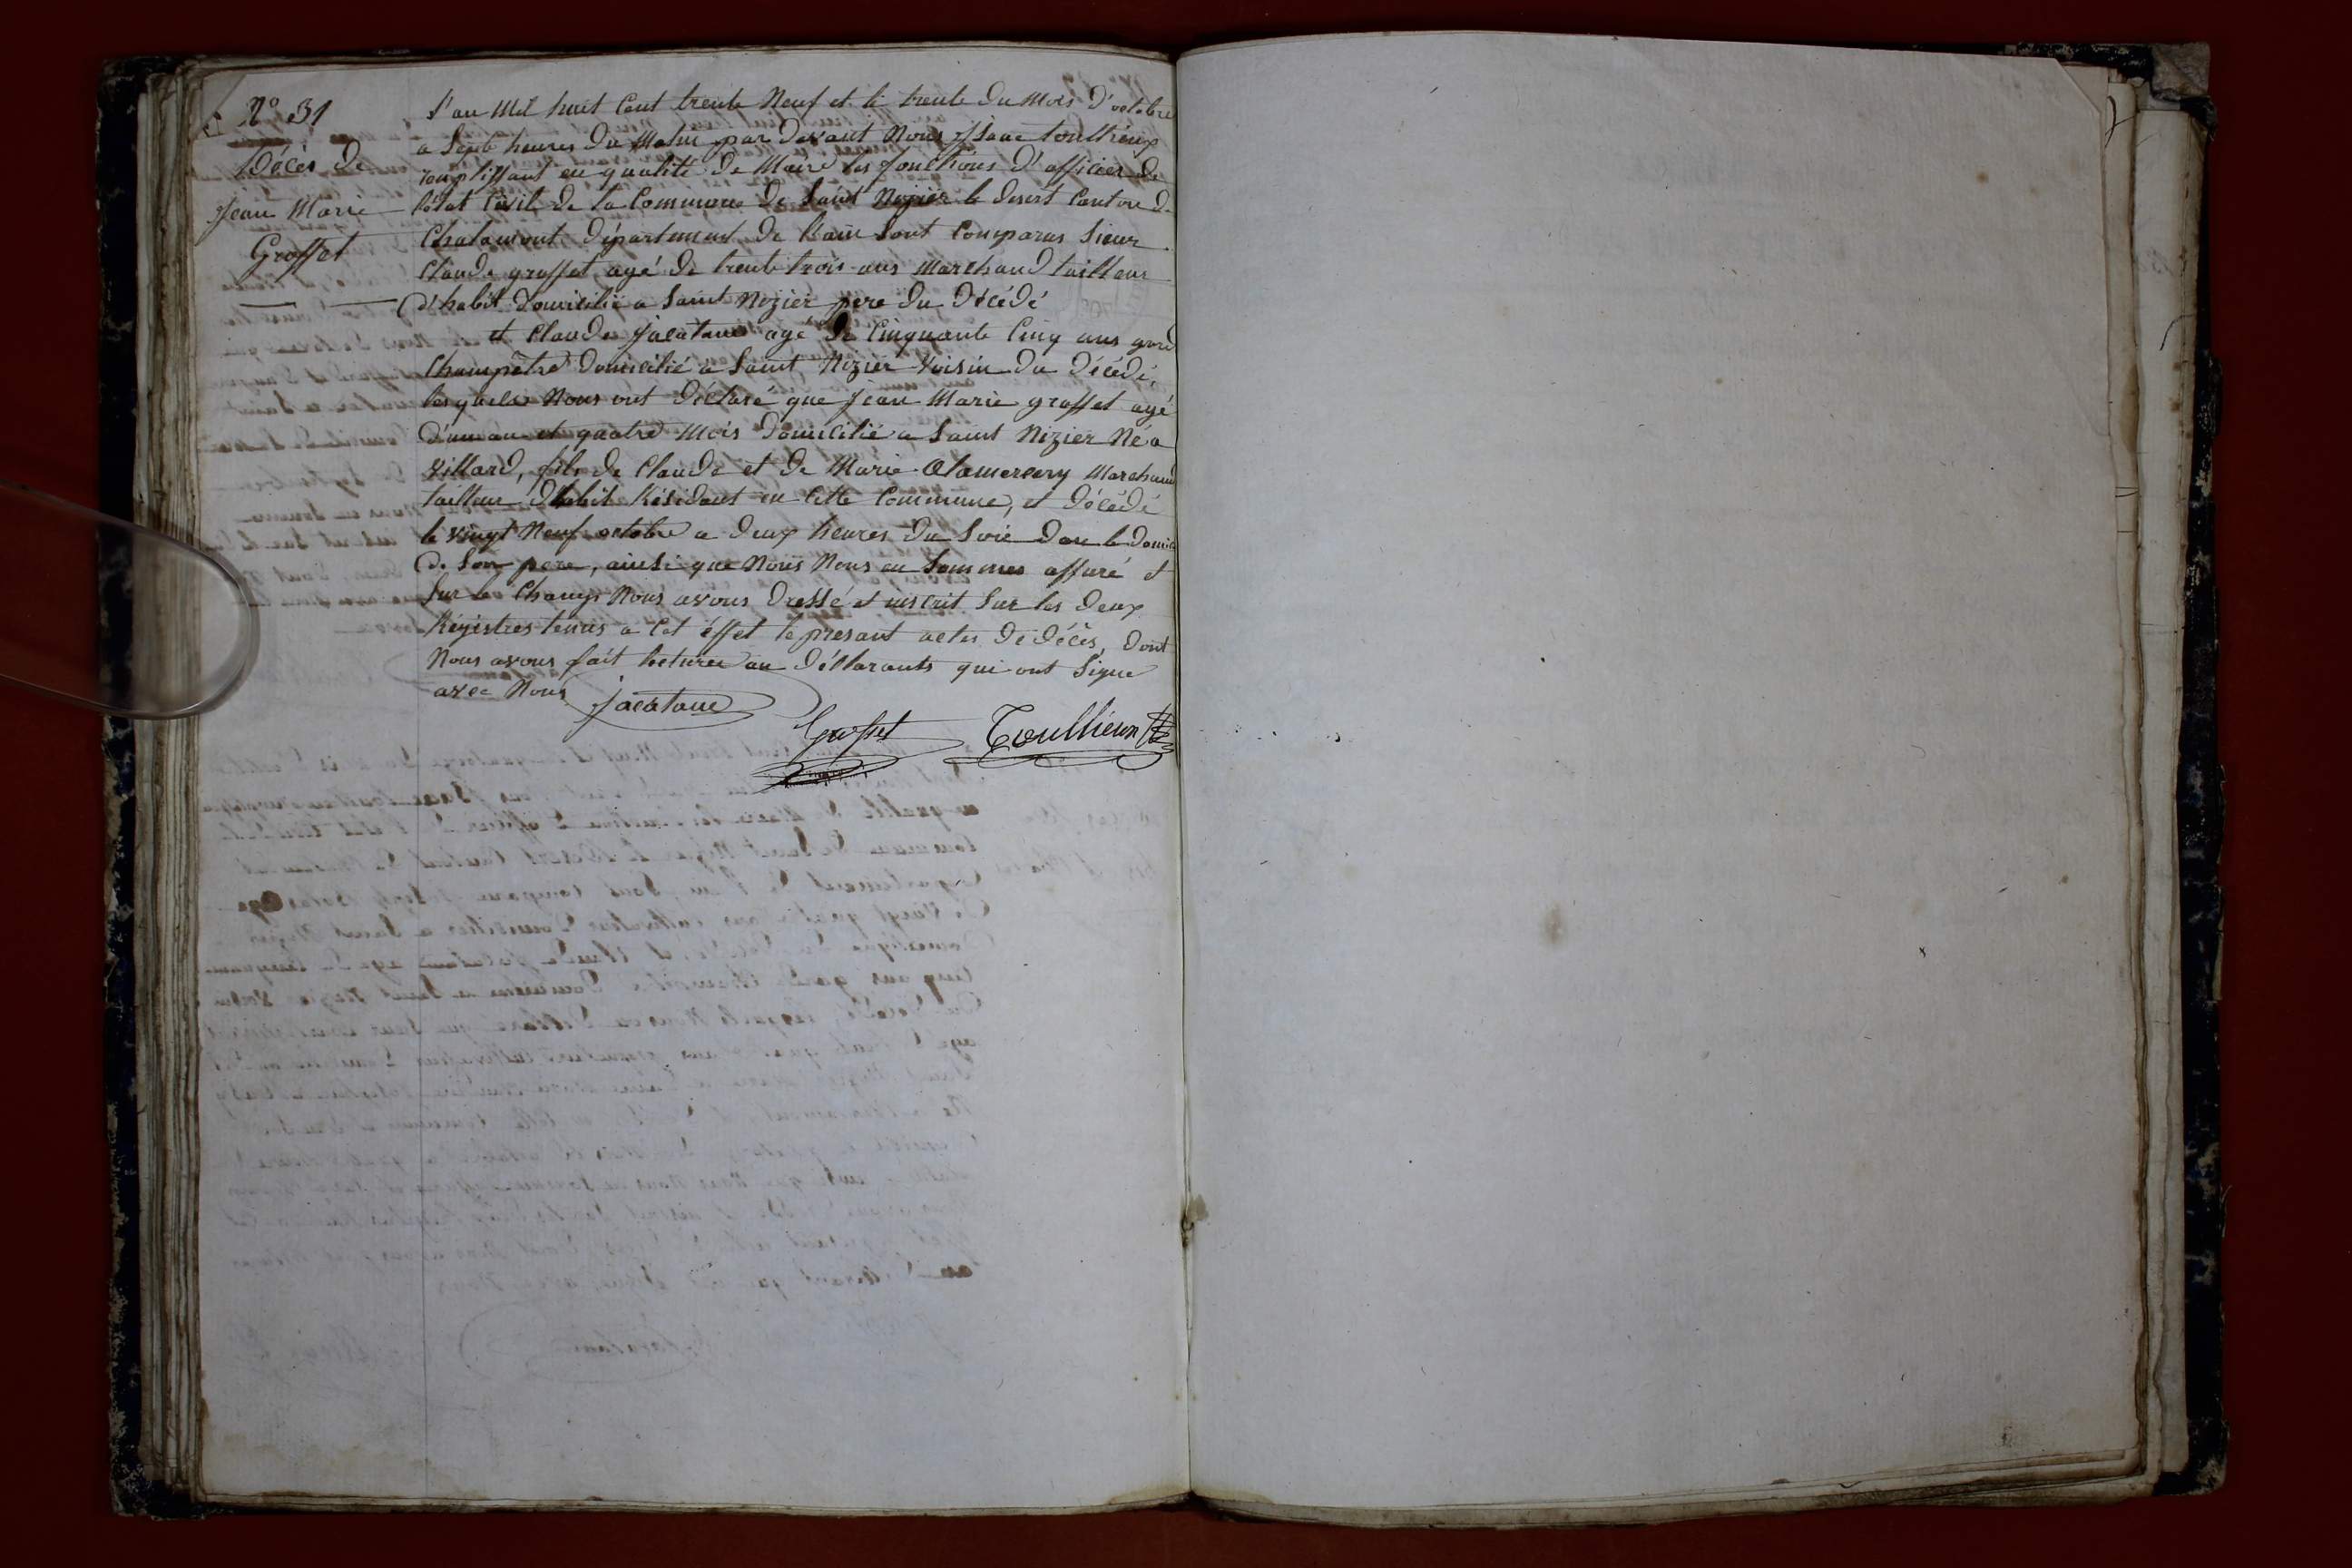 N° 31
Décès de
Jean Marie
Groffet
L'an Mil huit Cent trente Neuf et le trente du Mois d'octobre
a Sept heures du Matin par devant Nous Isaac toullieux
remplissant en qualité de Maire les fonctions d'officier de
l'état Civil de la Commune de Saint Nizier le desert Canton de
Chalamont département de l'ain Sont Comparus Sieur
Claude groffet agé de trente trois ans Marchand tailleur
d'habit domicilié a Saint Nizier pere du décédé
et Claude Jacatane agé de Cinquante Cinq ans gard
Champêtre domicilié a Saint Nizier Voisin du décédé,
lesquels Nous ont déclaré que Jean Marie groffet agé
d'un an et quatre Mois domicilié a Saint Nizier Né a
Villard, fils de Claude et de Marie Marchand
tailleur d'habit Résidant en Cette Commune, et décédé
le vingt Neuf octobre a deux heures du Soir dans le domic
de Son pere, ainsi que Nous Nous en Sommes assuré et
Sur le Champs Nous avons dressé et inscrit Sur les deux
Régistres tenus a Cet éffet le presant actes de décès, dont
Nous avons fait Lecture au déclarants qui ont Signe
avec Nous
Jacatane
Groffet Toullieux